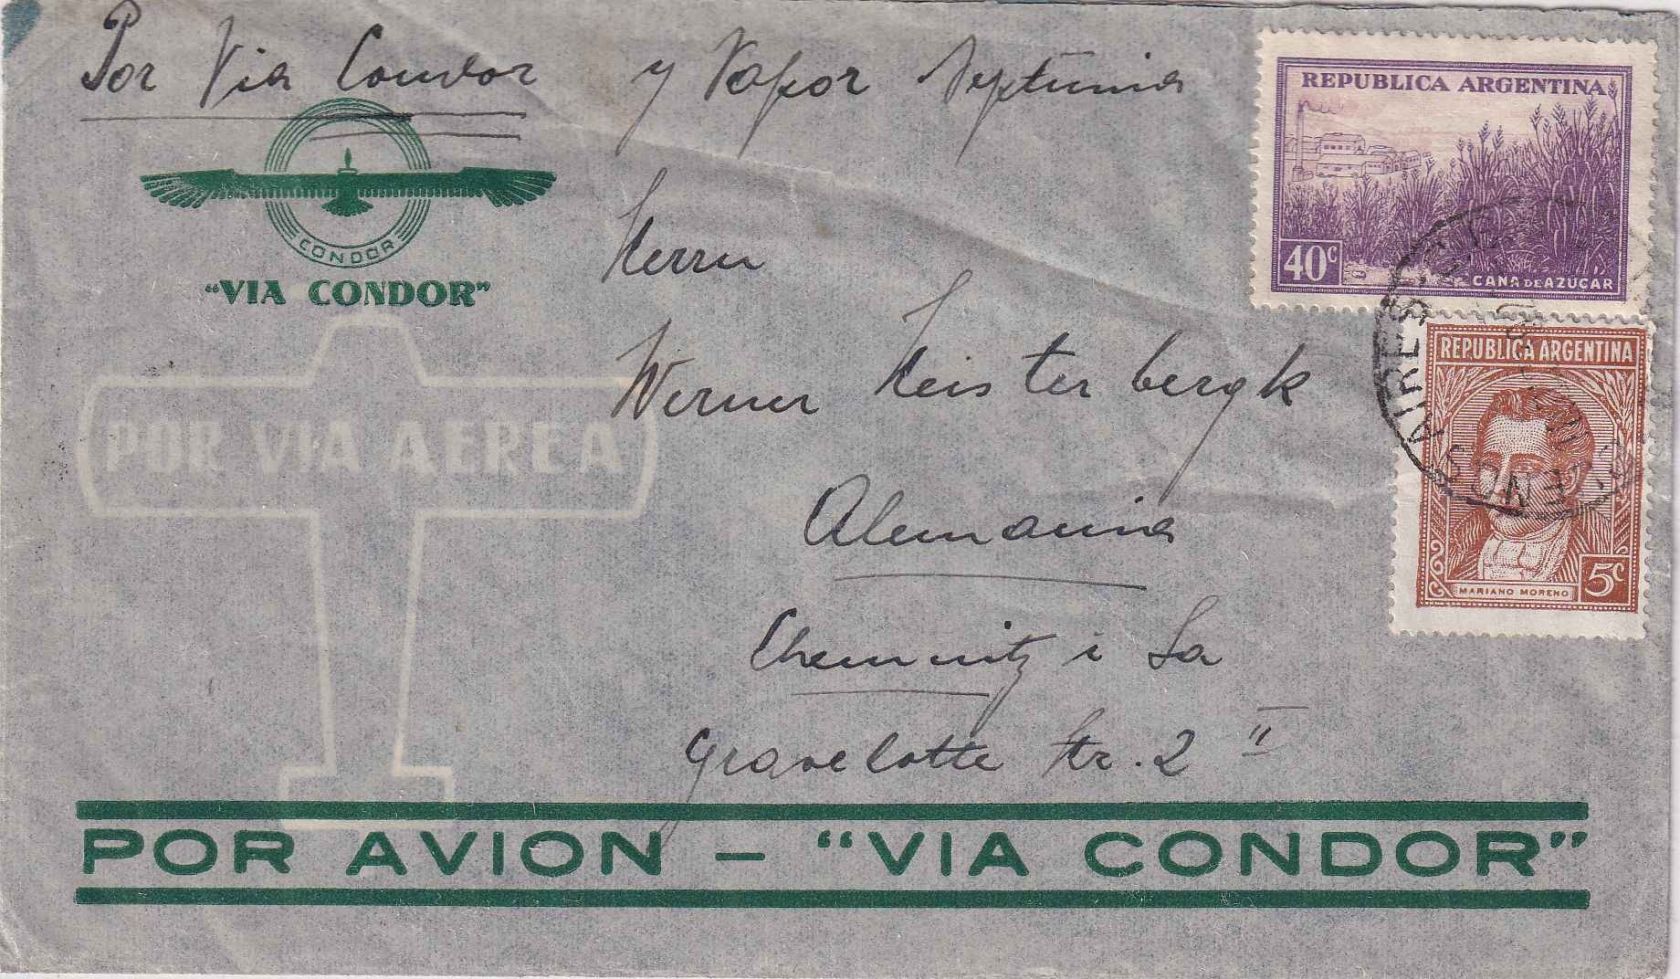 Por Via Condor y Vapor Neptunia
CONDOR
"VIA CONDOR"
POR VIA AEREA
REPUBLICA ARGENTINA
40c
CAÑA DE AZUCAR
REPUBLICA ARGENTINA
MARIANO MORENO
5c
BUENOS AIRES
Herrn
Werner Keisterbergk
Alemania
Chemnitz i Sa
Gravelotte Str. 2 II
POR AVION - "VIA CONDOR"